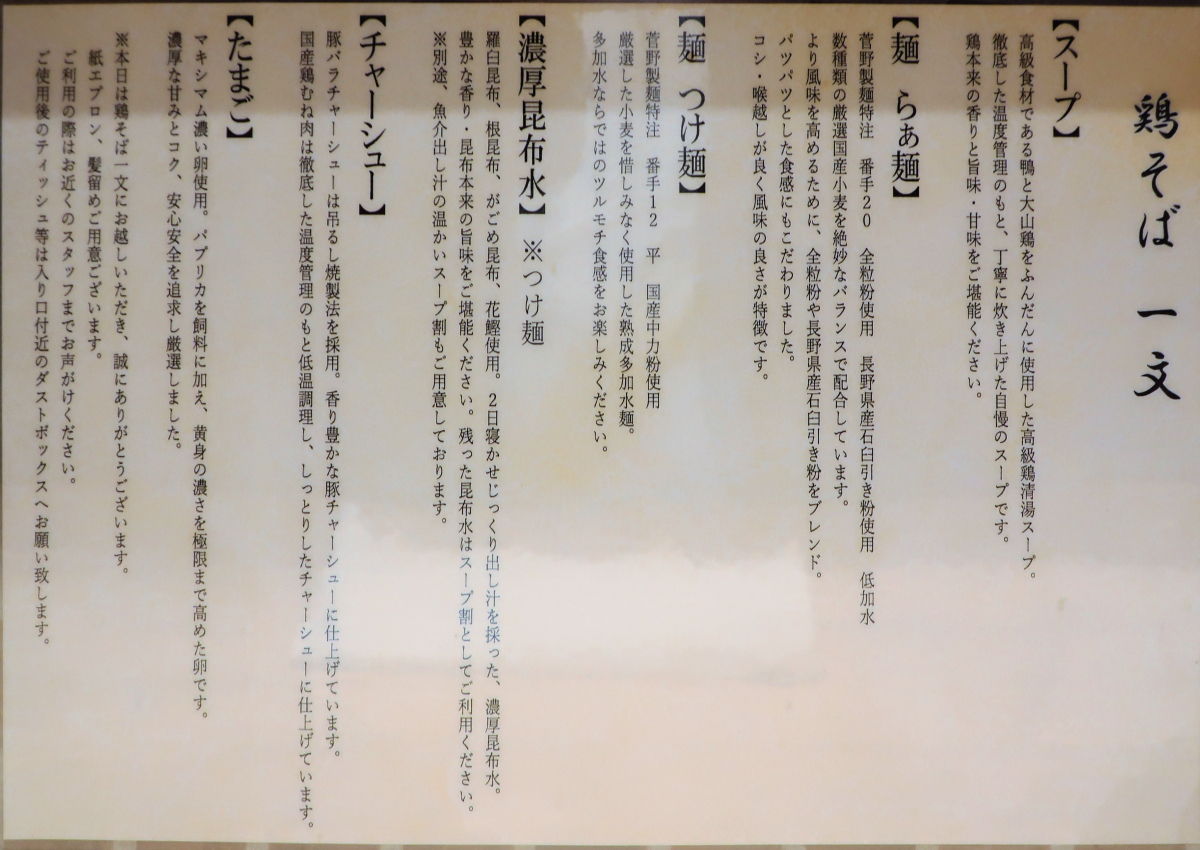 鶏そば 一文
【スープ】
高級食材である鴨と大山鶏をふんだんに使用した高級鶏清湯スープ。
徹底した温度管理のもと、丁寧に炊き上げた自慢のスープです。
鶏本来の香りと旨味・甘味をご堪能ください。
【麺 らぁ麺】
菅野製麺特注 番手20 全粒粉使用 長野県産石臼引き粉使用 低加水
数種類の厳選国産小麦を絶妙なバランスで配合しています。
より風味を高めるために、全粒粉や長野県産石臼引き粉をブレンド。
パツパツとした食感にもこだわりました。
コシ・喉越しが良く風味の良さが特徴です。
【麺 つけ麺】
菅野製麺特注 番手12 平 国産中力粉使用
厳選した小麦を惜しみなく使用した熟成多加水麺。
多加水ならではのツルモチ食感をお楽しみください。
【濃厚昆布水】 ※つけ麺
羅臼昆布、根昆布、がごめ昆布、花鰹使用。2日寝かせじっくり出し汁を採った、濃厚昆布水。
豊かな香り・昆布本来の旨味をご堪能ください。残った昆布水はスープ割としてご利用ください。
※別途、魚介出し汁の温かいスープ割もご用意しております。
【チャーシュー】
豚バラチャーシューは吊るし焼製法を採用。香り豊かな豚チャーシューに仕上げています。
国産鶏むね肉は徹底した温度管理のもと低温調理し、しっとりしたチャーシューに仕上げています。
【たまご】
マキシマム濃い卵使用。パプリカを飼料に加え、黄身の濃さを極限まで高めた卵です。
濃厚な甘みとコク、安心安全を追求し厳選しました。
※本日は鶏そば一文にお越しいただき、誠にありがとうございます。
紙エプロン、髪留めご用意ございます。
ご利用の際はお近くのスタッフまでお声がけください。
ご使用後のティッシュ等は入り口付近のダストボックスへお願い致します。